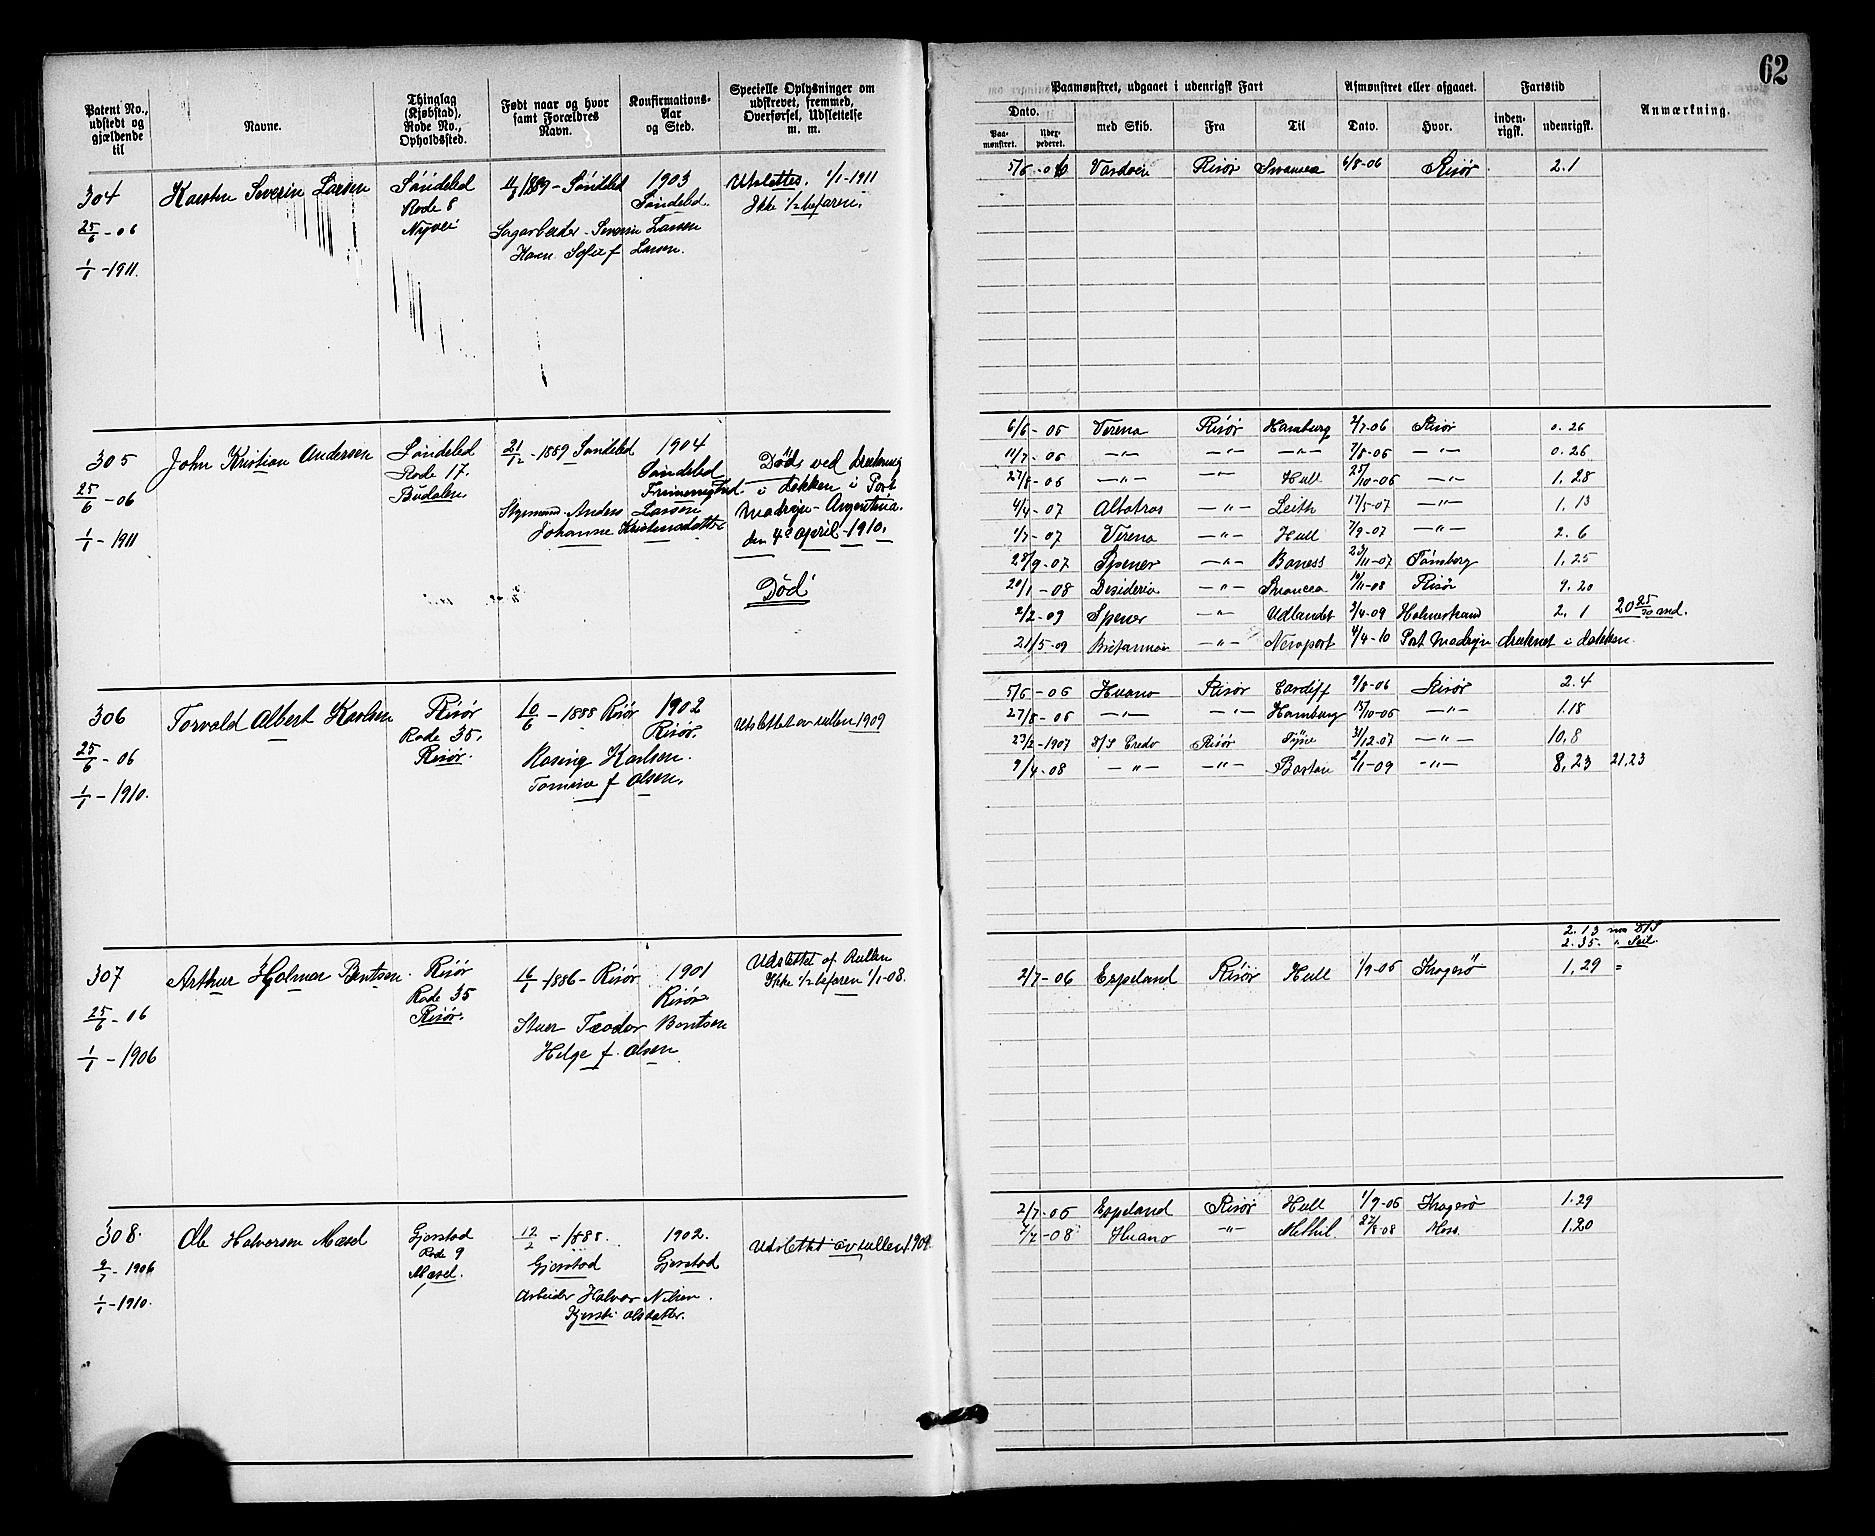 62
Patent No., udstedt og gjældende til
Navne.
Thinglag (Kjøbstad), Rode No., Opholdssted.
Født naar og hvor samt Forældres Navn.
Konfirmations-Aar og Sted.
Specielle Oplysninger om udskrevet, fremmed, Overførsel, Udslettelse m. m.
Paamønstret, udgaaet i udenrigsk Fart
Dato.
Paa-mønstret.
med Skib.
Fra
Til
Afmønstret eller afgaaet.
Dato.
Hvor.
Fartstid
inden-rigsk.
udenrigsk.
Anmærkning.
304
25/6 - 06
1/1 - 1911.
Karsten Severin Larsen
Søndeled
Rode 8
Nyvei
1889 - Søndeled
Sagarbeider - Severin Larsen
Karen Sofie f Larsen.
1903
Søndeled.
Udslettes. 1/1 - 1911
Ikke 1/2 befaren.
5/6 - 06 Vardøen Risør Swansea 6/8-06 Risør 2.1
305
25/6 - 06
1/1 - 1911
John Kristian Andersen
Søndeled
Rode 17.
Budalen
21/12 - 1889 Søndeled
1904
Søndeled
Styrmand Anders Larsen
Johanne Kristensdatter
Døds ved drukning
i dokken i Port
Madryn - Argentina.
den 4de april - 1910.
Død
6/6 - 06 Verena Risør Hamburg 2/7-06 Risør 0.26
11/7 - 06 —"— —"— —"— 7/8-06 —"— 0.26
27/8 - 06 —"— —"— Hull 25/10-06 —"— 1.28
4/4 - 07 Albatros —"— Leith 17/5-07 —"— 1.13
1/7 - 07 Verena —"— Hull 7/9-07 —"— 2.6
28/9 - 07 Spener —"— Boness 23/11-07 Tønsberg 1.25
20/1 - 08 Desideria —"— Swansea 10/11-08 Risør 9.20
2/2 - 09 Spener —"— Udlandet 3/4-09 Holmestrand 2.1 20 25/30 md.
21/5 - 09 —"— Newport 4/4-10 Port Madryn druknet i dokken.
306
25/6 - 06
1/1 - 1910.
Torvald Albert Karlsen
Risør
Rode 35.
Risør.
10/6 - 1888 Risør
Rasing Karlsen.
Tomine f Olsen.
1902
Risør.
Udslettet av rullen 1909
5/6 - 06 Huano Risør Cardiff 9/8-06 Risør 2.4
27/8 - 06 —"— —"— Hamburg 15/10-06 —"— 1.18
23/2 - 1907 D/S Credo Risør Tyne 31/12-07 —"— 10.8
9/4 - 08 —"— —"— Boston 2/1-09 —"— 8.23 21.23
307
25/6 - 06
1/1 - 1906
Arthur Hjalmar Bentsen.
Risør
Rode 35
Risør.
16/1 - 1886 - Risør
Stuer Teodor Bentsen
Helge f. Olsen
1901
Risør
Udslettet af Rullen
Ikke 1/2 befaren 1/1-08.
2.13 m D/S
2.35. " Seil.
2/7 - 06 Espeland Risør Hull 1/9-06 Kragerø 1.29 =
308.
9/7 - 1906
1/1 - 1910.
Ole Halvorsen Mæsel
Gjerstad
Rode 9
Mæsel.
12/2 - 1888.
Gjerstad
Arbeider Halvor Nilsen.
Kjersti Olsdatter.
1902.
Gjerstad
Udslettet av rullen 1909.
2/7 - 06 Espeland Risør Hull 1/9-06 Kragerø 1.29
7/7 - 08 Huano —"— Methil 27/8-08 Moss. 1.20